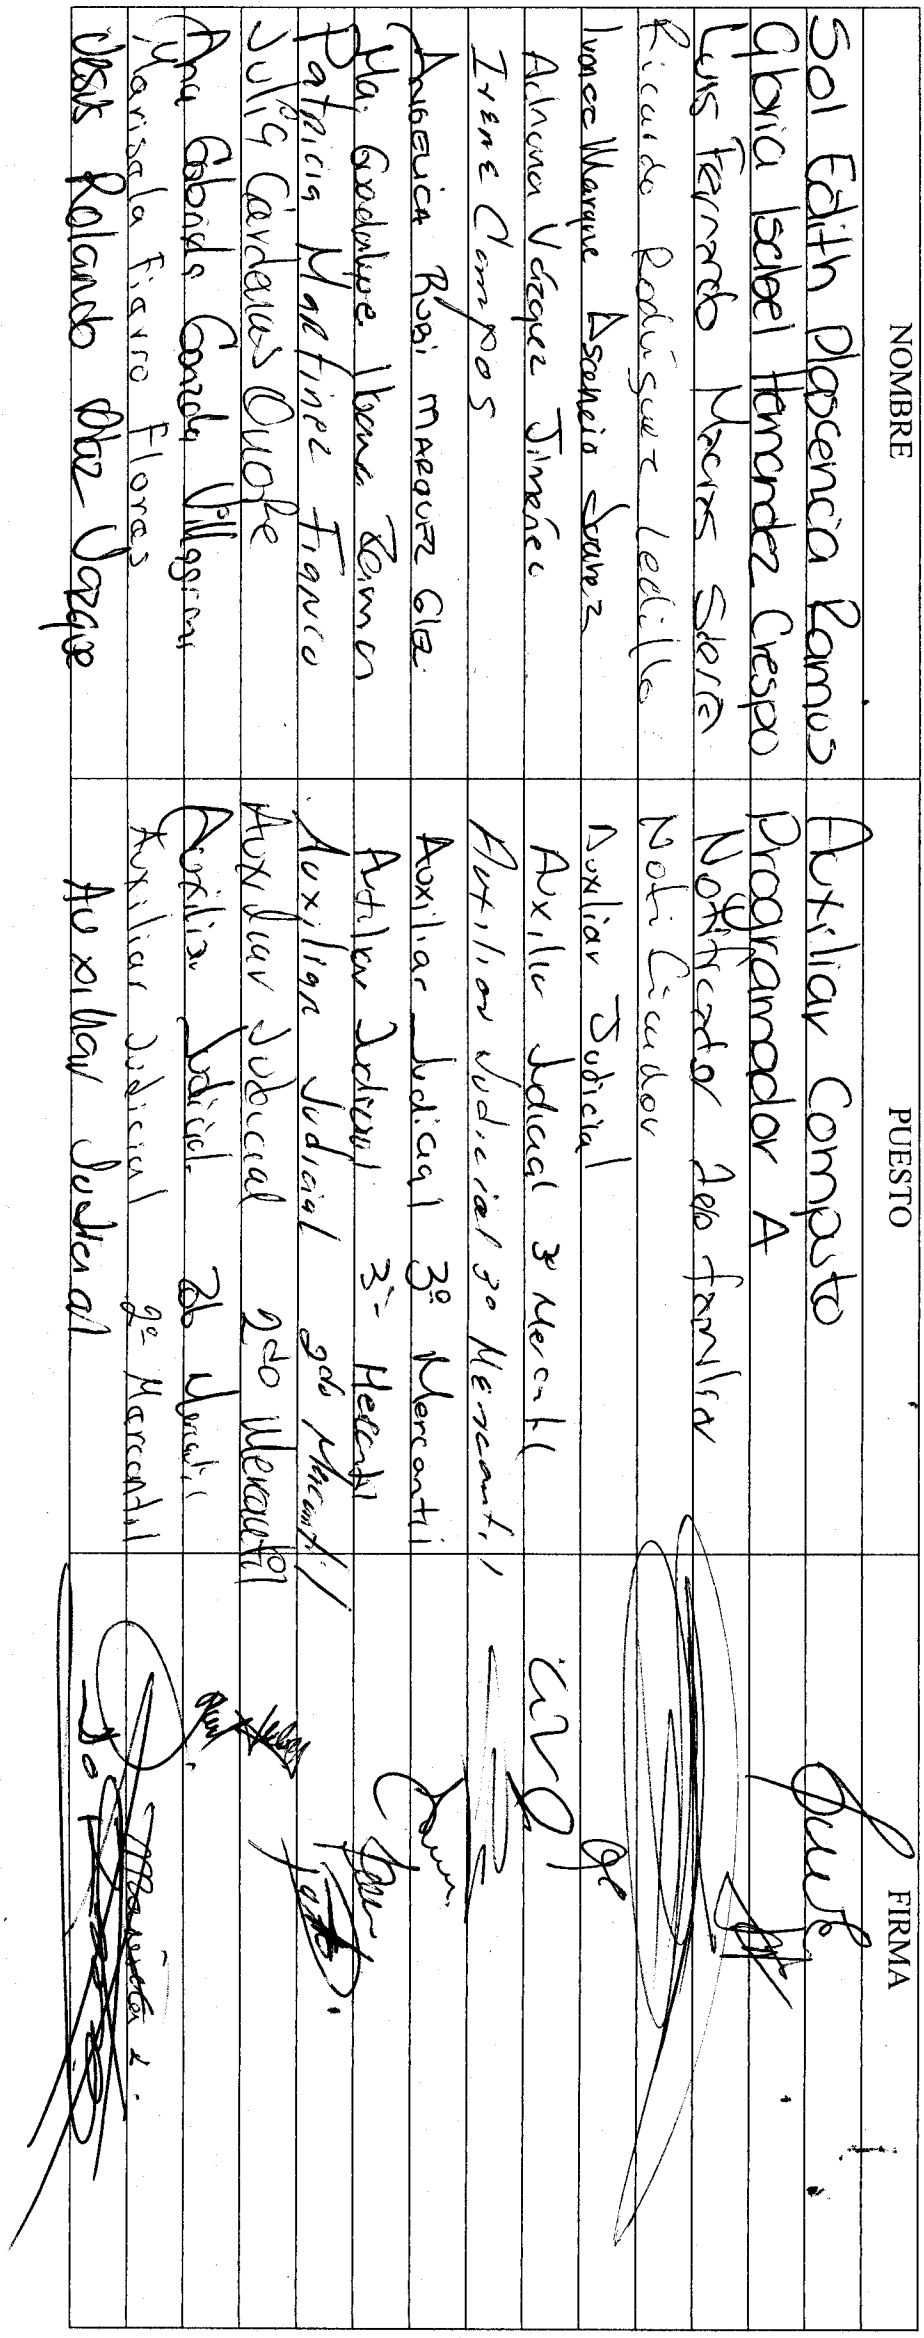 NOMBRE PUESTO FIRMA
Sol Edith Plascencia Ramos Auxiliar Computo
Gloria Isabel Hernandez Crespo Programador A
Luis Fernando Macias Notificador 2do familiar
Ricardo Rodriguez Ledillo Notificador
Ivonne Marque Ascencio Juarez Auxiliar Judicial
Adriana Vázquez Jiménez Auxiliar Judicial 3º Mercantil
Irene Campos Auxiliar Judicial 3º Mercantil
ANGELICA RUBI MARQUEZ Glz. Auxiliar Judicial 3º Mercantil
Ma. Guadalupe Ibarra Ramon Auxiliar Judicial 3º Mercantil
Patricia Martinez Franco Auxiliar Judicial 2do Mercantil
Julia Cárdenas Onofre Auxiliar Judicial 2do Mercantil
Ana Gabriela Villagrana Auxiliar Judicial 2do Mercantil
Marisela Fierro Flores Auxiliar Judicial 2º Mercantil
Jesus Rolando Diaz Auxiliar Judicial